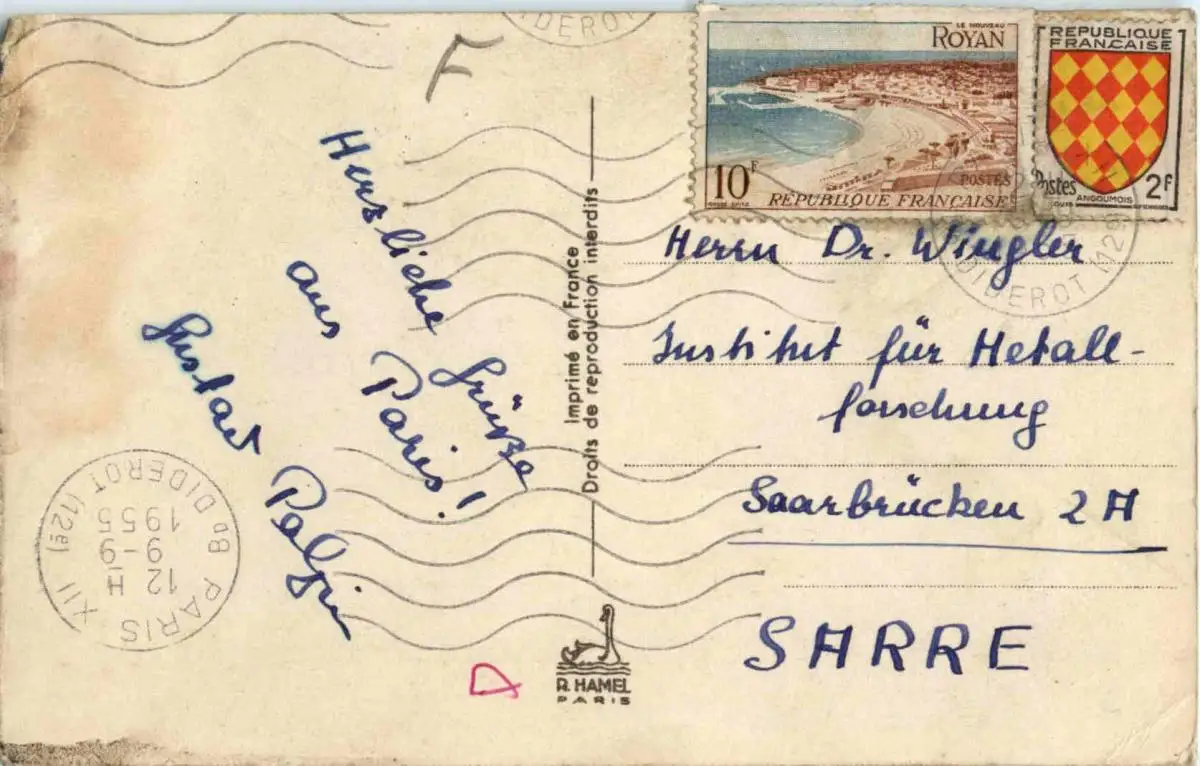 F
Herzliche Grüße
aus Paris!
Gustav
Imprimé en France
Droits de reproduction interdits
LE NOUVEAU
ROYAN
10F
POSTES
REPUBLIQUE FRANÇAISE
REPUBLIQUE
FRANÇAISE
Postes
2F
ANGOUMOIS
DIDEROT
Herrn Dr. Wingler
Institut für Metall-
forschung
Saarbrücken 2 A
SARRE
PARIS XII
Bd DIDEROT (12e)
12 H
9-9
1955
R. HAMEL
PARIS